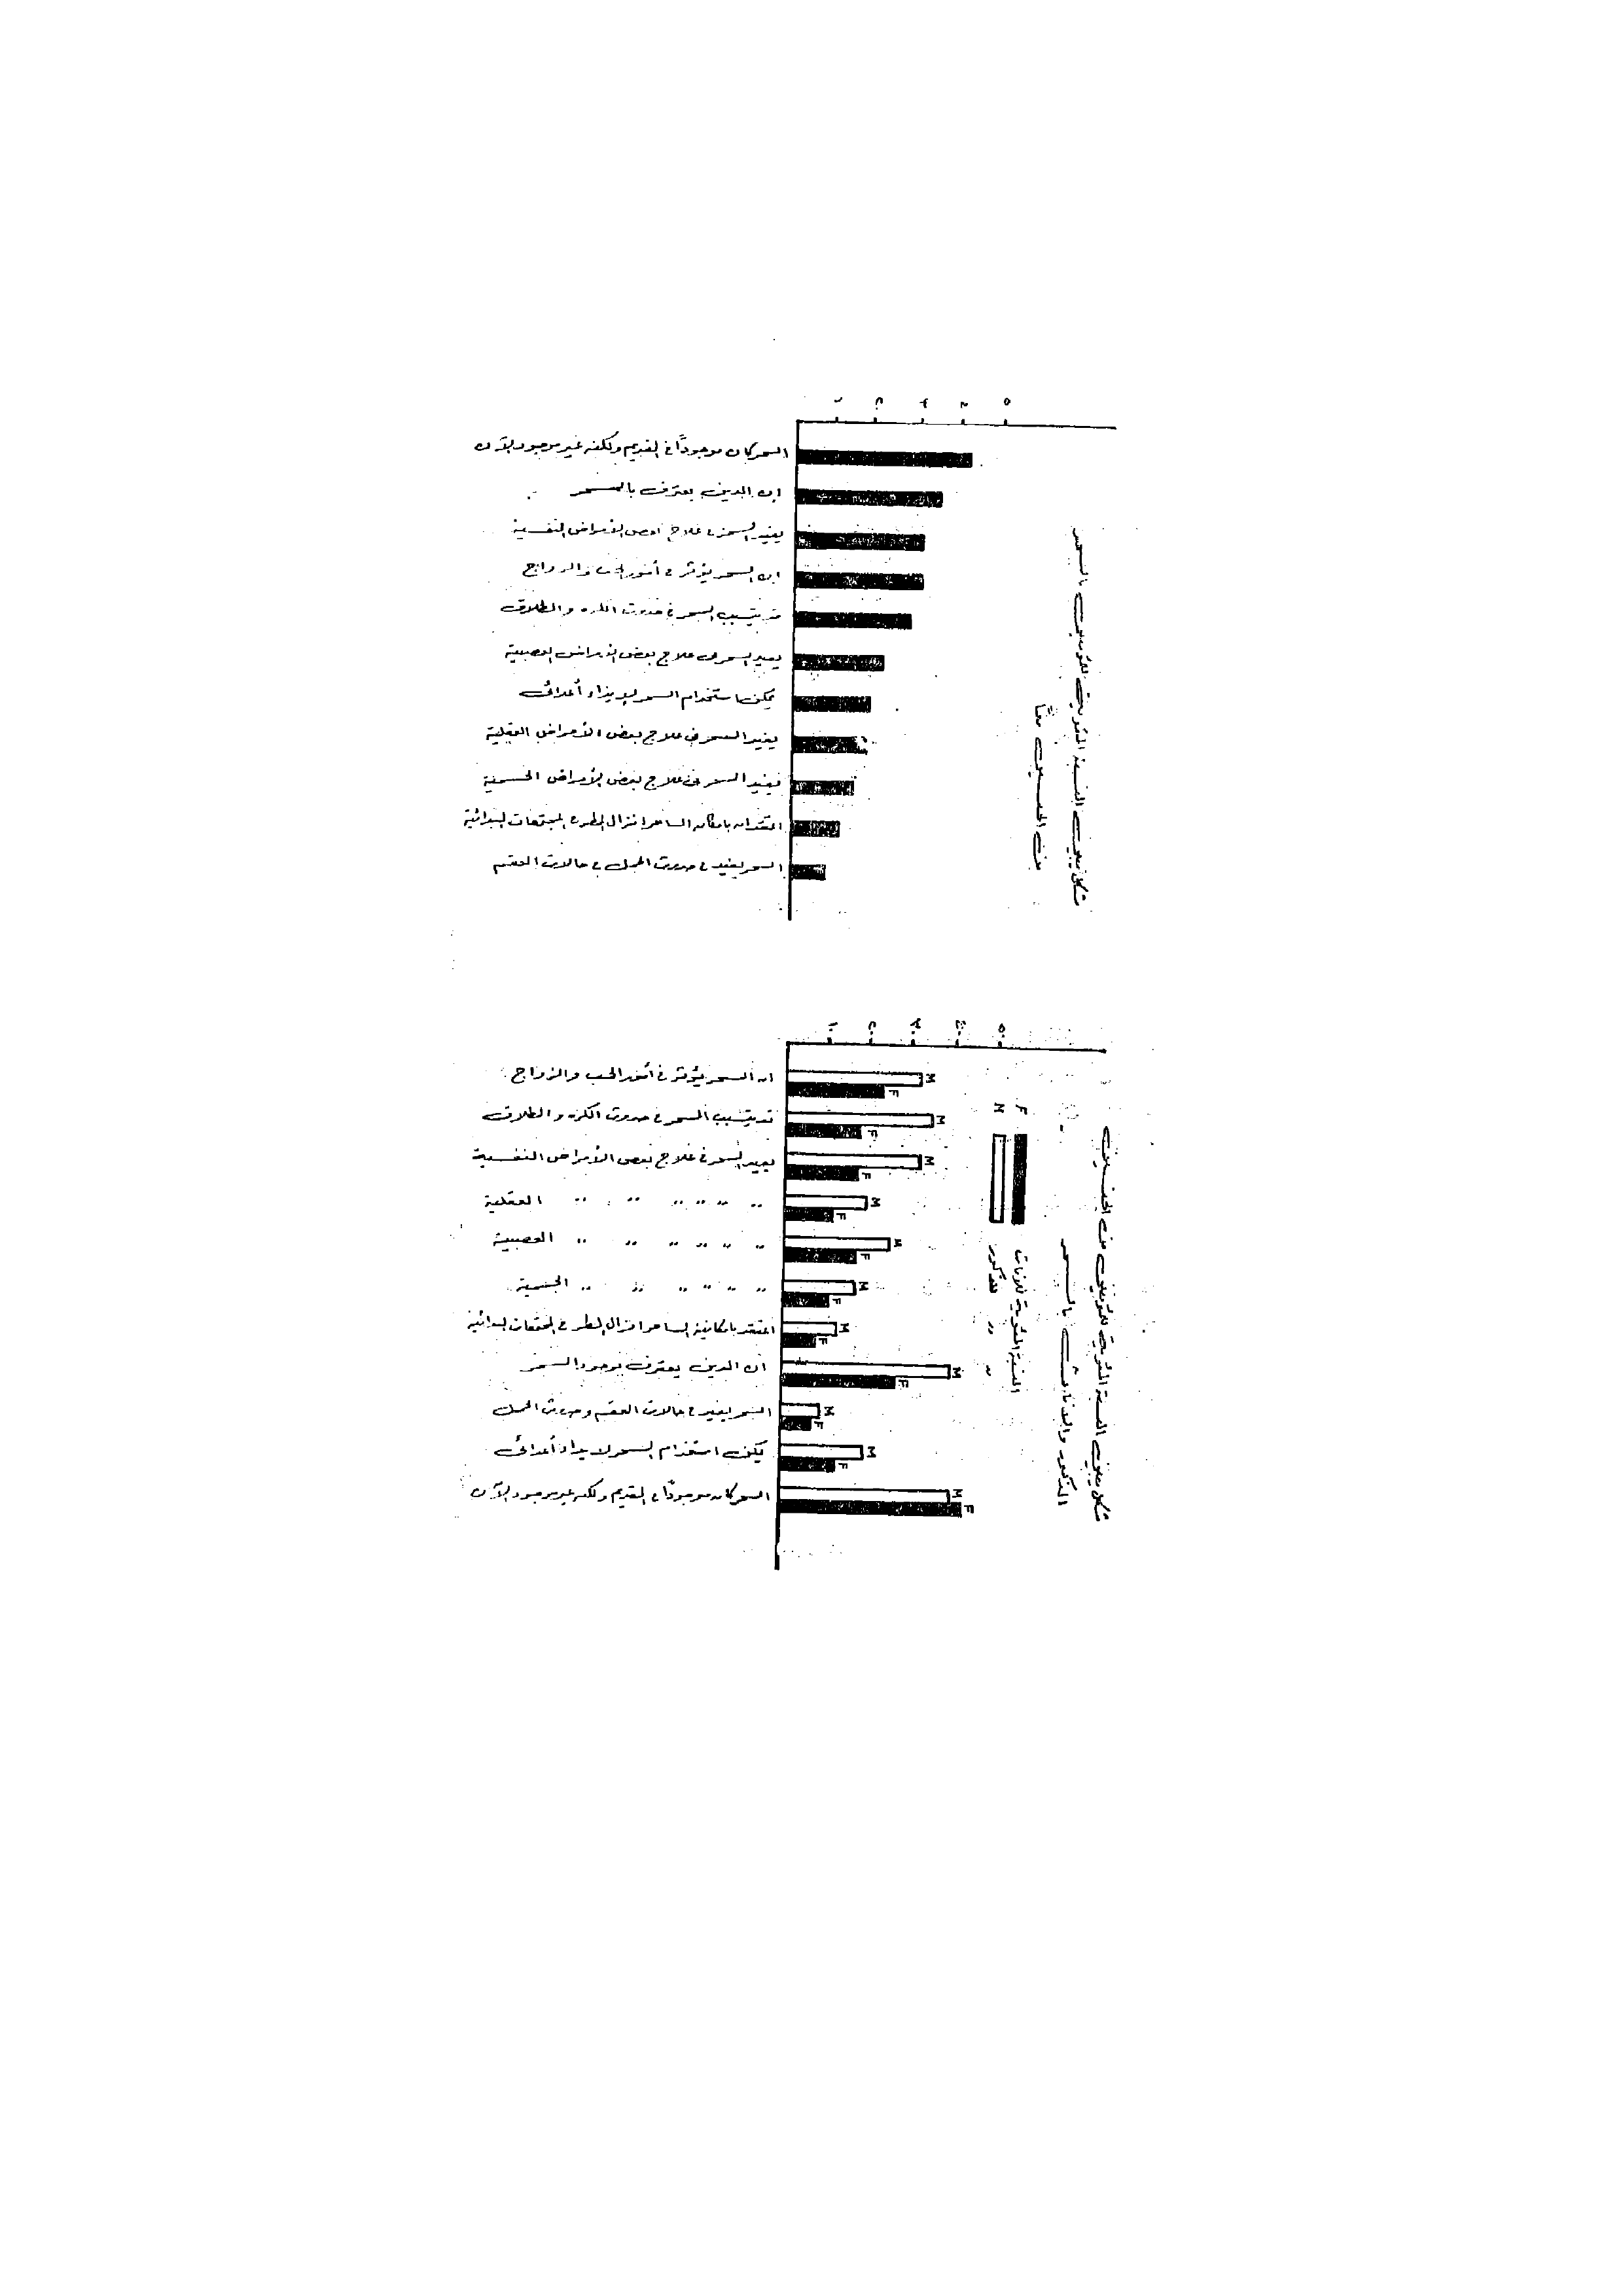 شكل يبين النسبة المئوية للمؤمنين بالسحر
من الجنسين معًا
١ ٢ ٣ ٤ ٥
السحر كان موجودًا في القديم ولكنه غير موجود الآن
إن الدين يعترف بالسحر
يفيد السحر في علاج بعض الأمراض النفسية
إن السحر يؤثر في أمور الحب والزواج
قد يتسبب السحر في حدوث الكره والطلاق
يفيد السحر في علاج بعض الأمراض العصبية
يمكن استخدام السحر لإيذاء أعدائى
يفيد السحر في علاج بعض الأمراض العقلية
يفيد السحر في علاج بعض الأمراض الجسمية
أعتقد أن بإمكان الساحر إنزال المطر في المجتمعات البدائية
السحر يفيد في حدوث الحمل في حالات العقم
شكل يبين النسبة المئوية للمؤمنين من الجنسين
الذكور والإناث بالسحر
F النسبة المئوية للإناث
M " " للذكور
١ ٢ ٣ ٤ ٥
إن السحر يؤثر في أمور الحب والزواج
قد يتسبب السحر في حدوث الكره والطلاق
يفيد السحر في علاج بعض الأمراض النفسية
" " " " " " العقلية
" " " " " " العصبية
" " " " " " الجسمية
أعتقد بإمكانية الساحر إنزال المطر في المجتمعات البدائية
أن الدين يعترف بوجود السحر
السحر يفيد في حالات العقم وحدوث الحمل
يمكن استخدام السحر لإيذاء أعدائى
السحر كان موجودًا في القديم ولكنه غير موجود الآن
M F